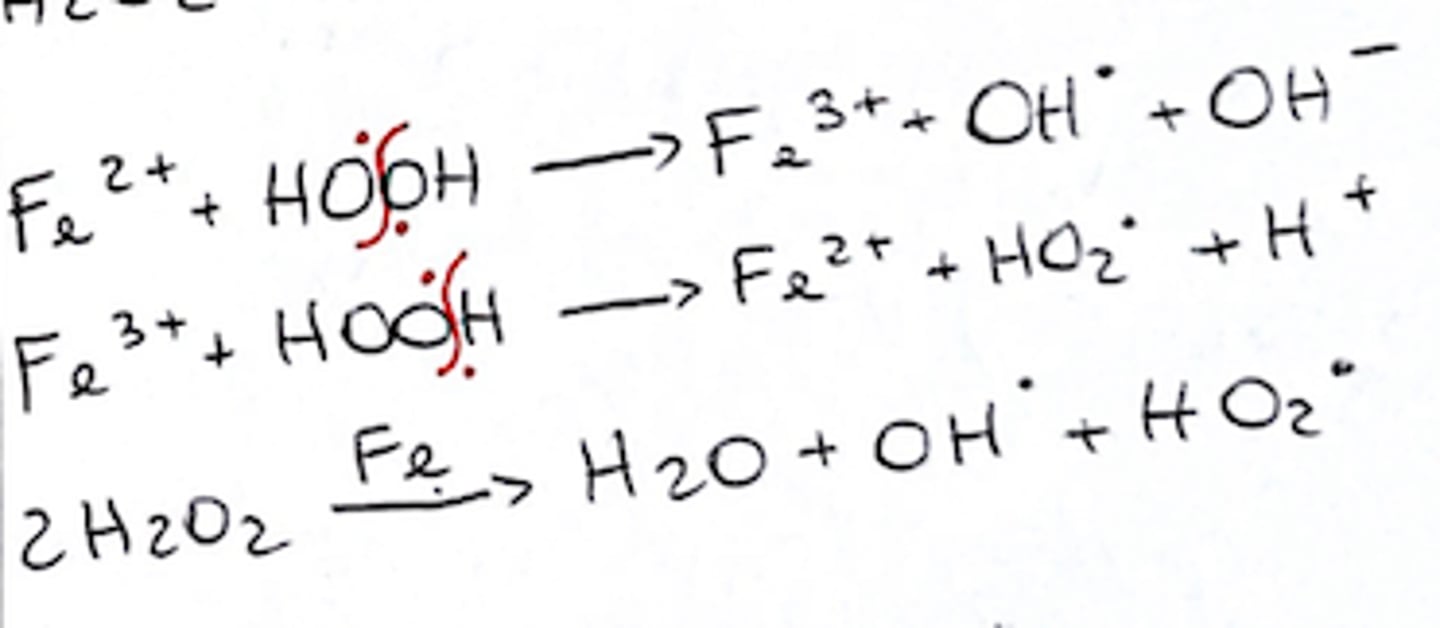 Fe²⁺ + HOOH ⟶ Fe³⁺ + OH• + OH⁻
Fe³⁺ + HOOH ⟶ Fe²⁺ + HO₂• + H⁺
2H₂O₂ ⟶ Fe H₂O + OH• + HO₂•